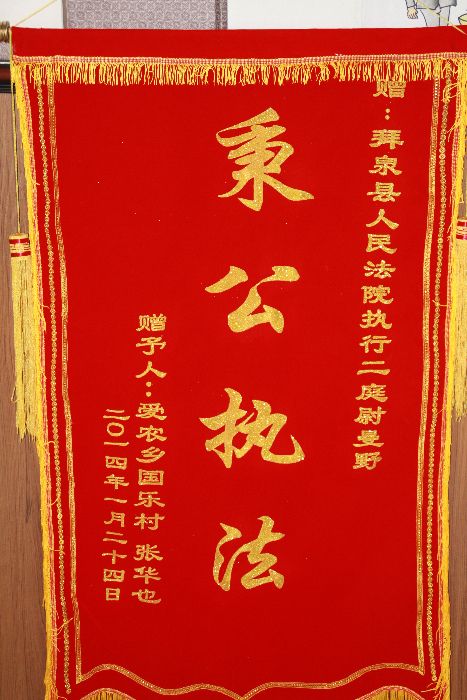 赠：拜泉县人民法院执行二庭尉曼野
秉公执法
赠予人：爱农乡国乐村 张华也
二〇一四年一月二十四日